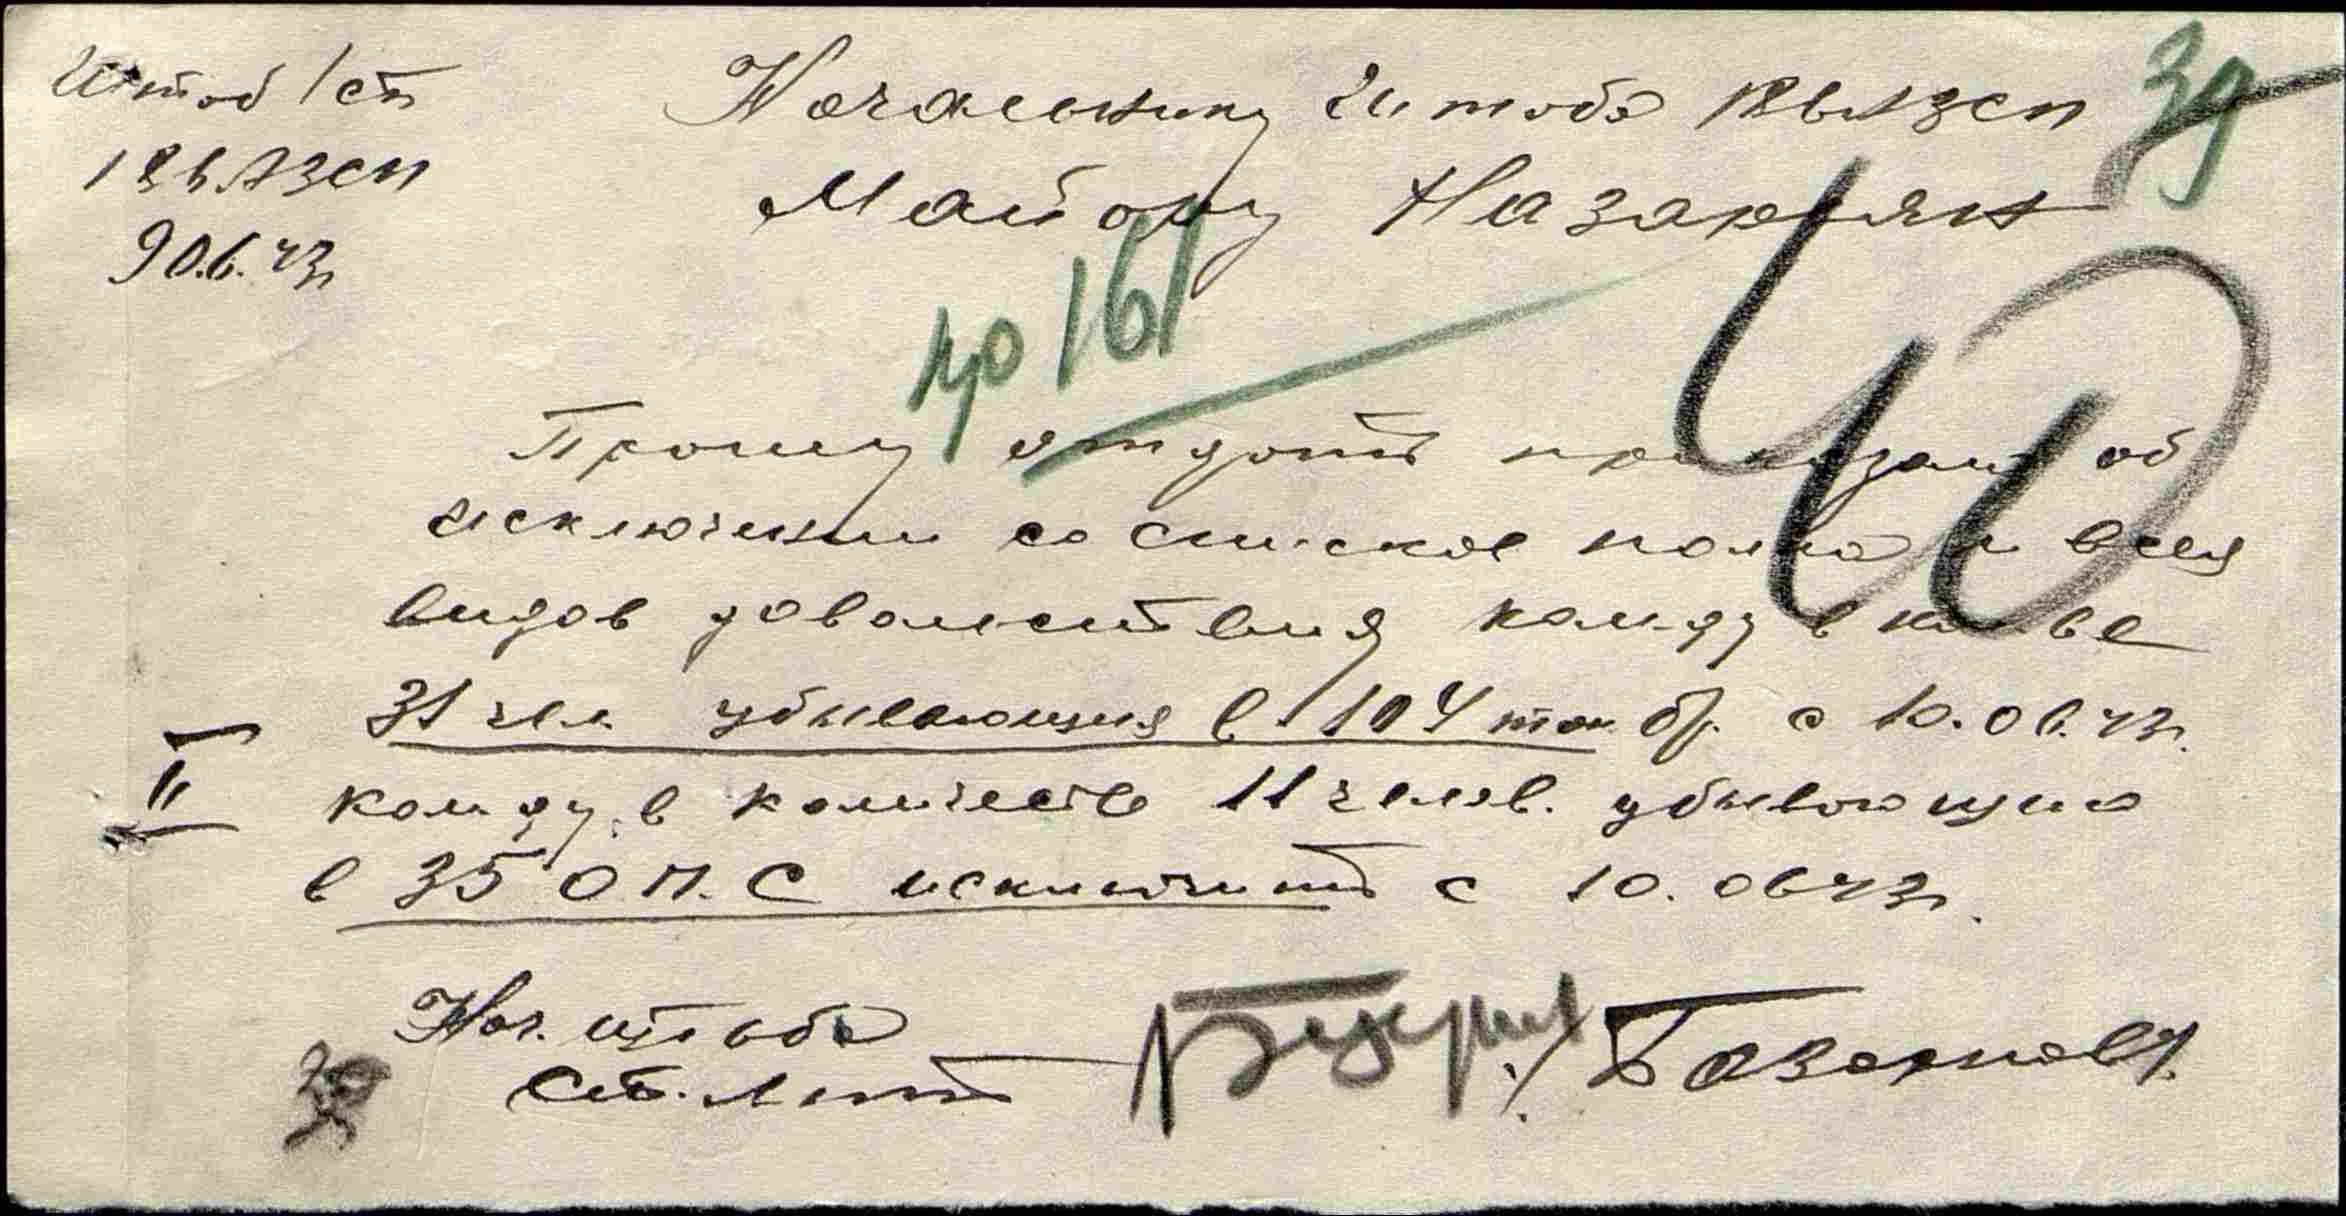 Штаб 1 сб
18 ВАЗСП
9 06.43г
Начальнику Штаба 18 ВАЗСП
39
Майору Назарьян
40
пр 161
Прошу отдать приказом об
исключении со списков полка и всех
видов довольствия команду в кол-ве
31 чел убывающия в 104 тан. бр. с 10.06.43г.
II команду в количестве 11 челов. убывающию
в 35 О П. С исключить с 10.06 43г.
Нач. штаба
Ст. Лит